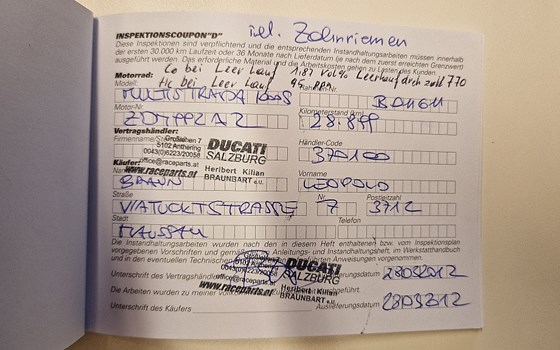 inkl. Zahnriemen
INSPEKTIONSCOUPON "D"
Diese Inspektionen sind verpflichtend und die entsprechenden Instandhaltungsarbeiten müssen innerhalb
der ersten 30.000 km Laufzeit oder 36 Monate nach Lieferdatum (je nach dem zuerst erreichten Grenzwert)
ausgeführt werden. Das erforderliche Material und die Arbeitskosten gehen zu Lasten des Kunden.
Co bei Leerlauf 1.87 Vol% Leerlaufdrehzahl 770
Motorrad:
Hc bei Leerlauf 95 PPM
Modell:
MULTISTRADA 1000S
Motor-Nr.
Kilometerstand
28.899
Vertragshändler:
Firmenname/
5102 Anthering
0043(0)6223/20058
office@raceparts.at
www.raceparts.at
DUCATI
SALZBURG
Heribert Kilian
BRAUNBART e.U.
Händler-Code
370100
Käufer:
BRAUN
Vorname
LEOPOLD
Straße
Nr.
7
Postleitzahl
3712
Stadt
Telefon
MAISSAU
Die Instandhaltungsarbeiten wurden nach den in diesem Heft enthaltenen bzw. vom Inspektionsplan
vorgegebenen Vorschriften und gemäß den Anleitungs- und Instandhaltungsheft, im Werkstatthandbuch
und in den eventuellen Technischen Anweisungen vorgenommen.
Unterschrift des Vertragshändlers
DUCATI
SALZBURG
0043(0)6223/20058
office@raceparts.at
www.raceparts.at
Heribert Kilian
BRAUNBART e.U.
28032012
Die Arbeiten wurden zu meiner
Unterschrift des Käufers
Auslieferungsdatum
28032012